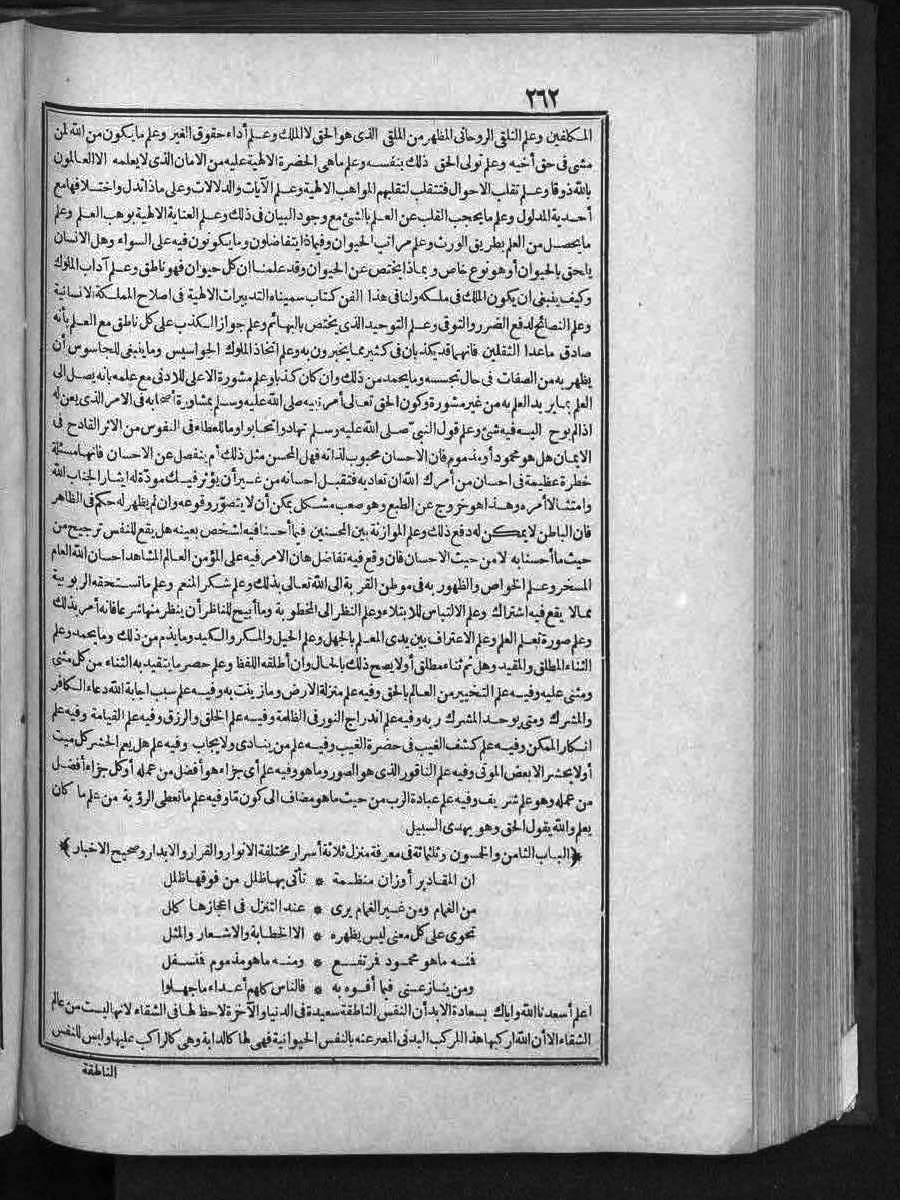 ٢٦٢
المكلفين وعلم التلقى الروحانى المظهر من الملقى الذى هو الحق لا الملك وعلم أداء حقوق الغير وعلم ما يكون من الله لمن
مشى فى حق أخيه وعلم تولى الحق ذلك بنفسه وعلم ما هى الحضرة الالهية عليه من الامان الذى لا يعلمه الا العالمون
بالله ذوقا وعلم تقلب الاحوال فتتقلب لتقلبهم المواهب الالهية وعلم الآيات والدلالات وعلى ماذا تدل واختلافها مع
أحدية المدلول وعلم ما يحجب القلب عن العلم بالشئ مع وجود البيان فى ذلك وعلم العناية الالهية بوهب العلم وعلم
ما يحصل من العلم بطريق الورث وعلم مراتب الحيوان وفيماذا يتفاضلون وما يكونون فيه على السواء وهل الانسان
يلحق بالحيوان أو هو نوع خاص وبماذا يختص عن الحيوان وقد علمنا ان كل حيوان فهو ناطق وعلم آداب الملوك
وكيف ينبغى ان يكون الملك فى ملكه ولنا فى هذا الفن كتاب سميناه التدبيرات الالهية فى اصلاح المملكة الانسانية
وعلم النصائح لدفع الضرر والتوقى وعلم التوحيد الذى يختص بالبهائم وعلم جواز الكذب على كل ناطق مع العلم بأنه
صادق ماعدا الثقلين فانهما قد يكذبان فى كثير مما يخبرون به وعلم اتخاذ الملوك الجواسيس وما ينبغى للجاسوس أن
يظهر به من الصفات فى حال تجسسه وما يحمد من ذلك وان كان كذبا وعلم مشورة الاعلى للادنى مع علمه بانه يصل الى
العلم بما يريد العلم به من غير مشورة وكون الحق تعالى أمر نبيه صلى الله عليه وسلم بمشاورة أصحابه فى الامر الذى يعن له
اذا لم يوح اليه فيه شئ وعلم قول النبى صلى الله عليه وسلم تهادوا تحابوا وما للعطاء فى النفوس من الاثر القادح فى
الايمان هل هو محمود أو مذموم فان الاحسان محبوب لذاته فهل المحسن مثل ذلك أم ينفصل عن الاحسان فانها مسئلة
خطرة عظيمة فى احسان من أمرك الله أن تعاديه فتقبل احسانه من غير أن يؤثر فيك مودّة له ايثار الجناب الله
وامتثالا لأمره وهذا هو خروج عن الطبع وهو صعب مشكل يمكن أن لا يتصوّر وقوعه وان لم يظهر له حكم فى الظاهر
فان الباطن لا يمكن له دفع ذلك وعلم الموازنة بين المحسنين فيما أحسنا فيه لشخص بعينه هل يقع للنفس ترجيح من
حيث ما أحسنا به لا من حيث الاحسان فان وقع فيه تفاضل هان الامر فيه على المؤمن العالم المشاهد احسان الله العام
المسخر وعلم الخواص والظهور به فى موطن القربة الى الله تعالى بذلك وعلم شكر المنعم وعلم ما تستحقه الربوبية
مما لا يقع فيه اشتراك وعلم الالتباس للابتلاء وعلم النظر الى المخطوبة وما أبيح للناظر أن ينظر منها شرعا فانه أمر بذلك
وعلم صورة تعلم العلم وعلم الاعتراف بين يدى المعلم بالجهل وعلم الحيل والمكر والكيد وما يذم من ذلك وما يحمد وعلم
الثناء المطلق والمقيد وهل ثم ثناء مطلق أو لا يصح ذلك بالحال وان أطلقه اللفظ وعلم حصر ما يتقيد به الثناء من كل مثنى
ومثنى عليه وفيه علم التخيير من العالم بالحق وفيه علم منزلة الارض وما زينت به وفيه علم سبب اجابة الله دعاء الكافر
والمشرك ومتى يوحد المشرك ربه وفيه علم اندراج النور فى الظلمة وفيه علم الخلق والرزق وفيه علم القيامة وفيه علم
انكار الممكن وفيه علم كشف الغيب فى حضرة الغيب وفيه علم من ينادى ولا يجاب وفيه علم هل يعم الحشر كل ميت
أو لا يحشر الا بعض الموتى وفيه علم الناقور الذى هو الصور وما هو وفيه علم أى جزاء هو أفضل من عمله أو كل جزاء أفضل
من عمله وهو علم شريف وفيه علم عبادة الرب من حيث ما هو مضاف الى كون مّا وفيه علم ما تعطى الرؤية من علم ما كان
يعلم والله يقول الحق وهو يهدى السبيل
﴿الباب الثامن والخمسون وثلثمائة فى معرفة منزل ثلاثة أسرار مختلفة الانوار والقرار والابدار وصحيح الاخبار﴾
ان المقادير أوزان منظمة * تأتى بها ظلل من فوقها ظلل
من الغمام ومن غير الغمام يرى * عند التنزل فى اعجازها كلل
تحوى على كل معنى ليس يظهره * الا الخطابة والاشعار والمثل
فمنه ما هو محمود فيرتفع * ومنه ما هو مذموم فينسفل
ومن ينازعنى فيما أفوه به * فالناس كلهم أعداء ما جهلوا
اعلم أسعدنا الله واياك بسعادة الابد أن النفس الناطقة سعيدة فى الدنيا والآخرة لاحظ لها فى الشقاء لانها ليست من عالم
الشقاء الا أن الله أركبها هذا المركب البدنى المعبر عنه بالنفس الحيوانية فهى لها كالدابة وهى كالراكب عليها وليس للنفس
الناطقة